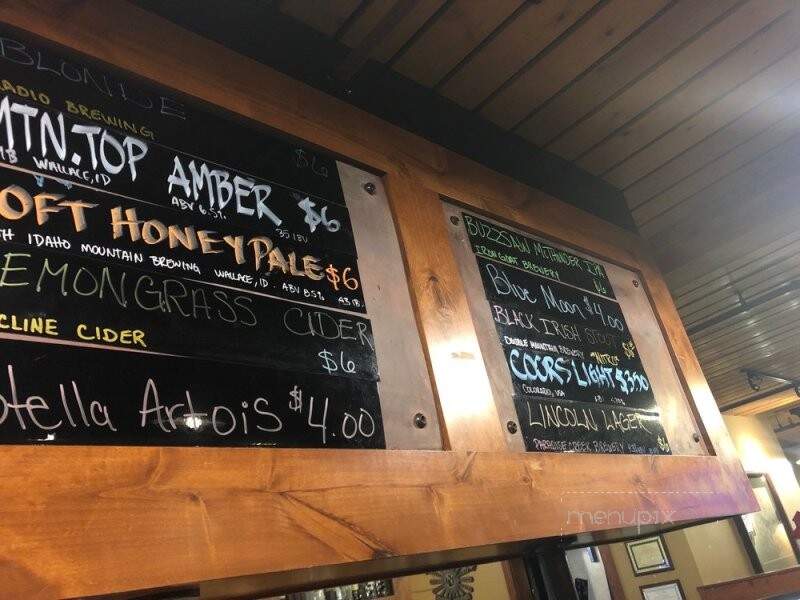 BLONDE
RADIO BREWING
$6
MTN. TOP AMBER $6
WALLACE, ID
ABV 6.5%
35 IBU
OFT HONEY PALE $6
IDAHO MOUNTAIN BREWING WALLACE, ID. ABV 8.5%
EMONGRASS CIDER
CLINE CIDER
$6
tella Artois $4.00
BUZZSAW MCTHUNDER IPA
IRON GOAT BREWERY
$6
Blue Moon $4.00
BLACK IRISH STOUT
DOUBLE MOUNTAIN BREWERY "NITRO"
COORS LIGHT $3.50
COLORADO, USA
LINCOLN LAGER
PARADISE CREEK BREWERY
$6
menupix